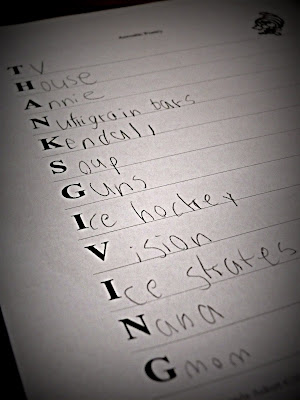 Acrostic Poetry
TV
House
Annie
Nutrigrain bars
Kendall
Soup
Guns
Ice hockey
Vision
Ice strates
Nana
Gmom